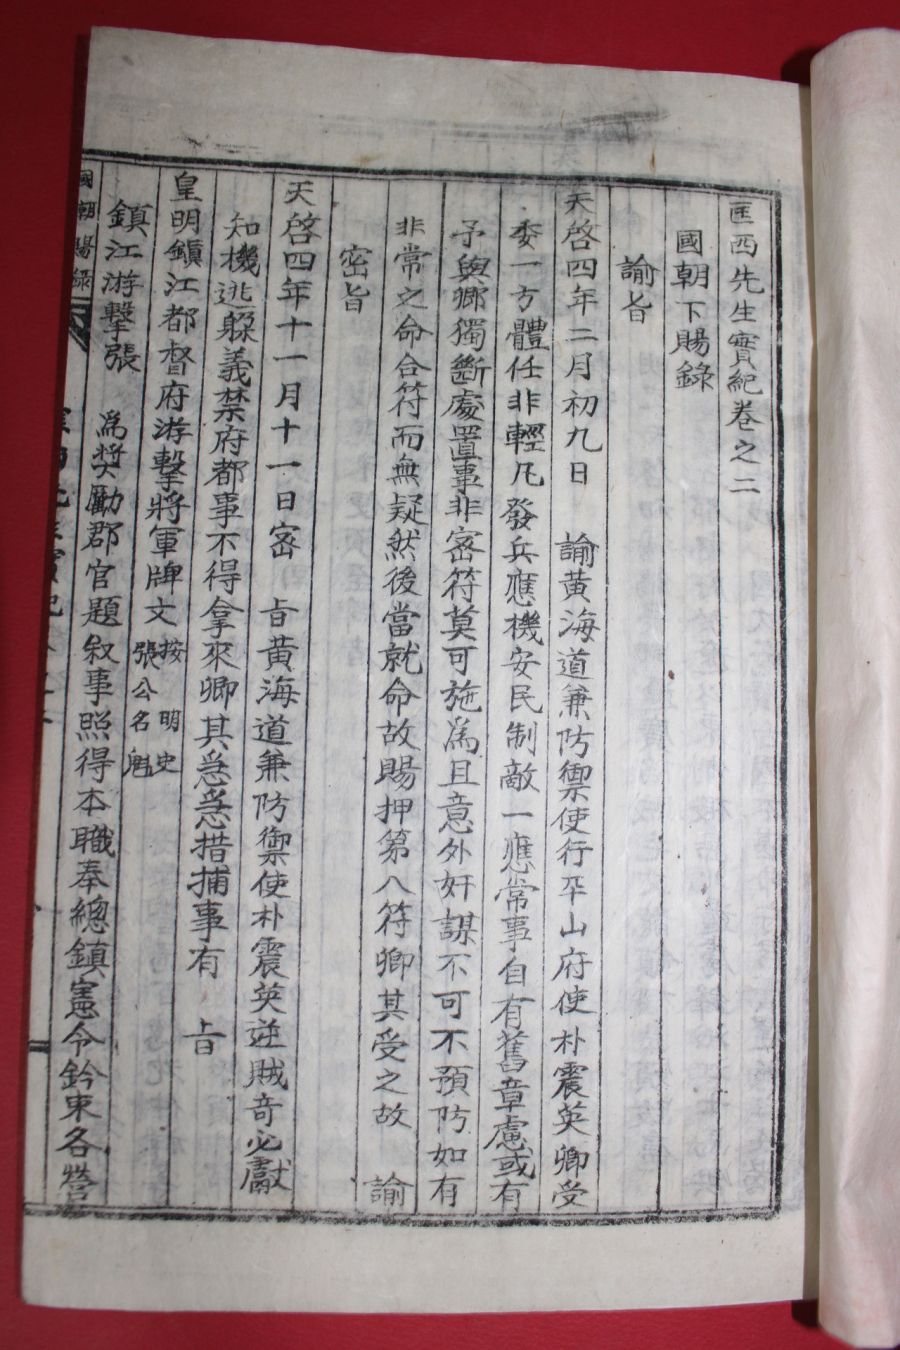 匡西先生實紀卷之二
國朝下賜錄
諭旨
天啓四年二月初九日 諭黃海道兼防禦使行平山府使朴震英卿受
委一方體任非輕凡發兵應機安民制敵一應常事自有舊章慮或有
予與卿獨斷處置事非密符莫可施爲且意外奸謀不可不預防如有
非常之命合符而無疑然後當就命故賜押第八符卿其受之故 諭
密旨
天啓四年十一月十一日密 旨黃海道兼防禦使朴震英逆賊奇必獻
知機逃躱義禁府都事不得拿來卿其急急措捕事有 旨
皇明鎭江都督府游擊將軍牌文 按明史張公名魁
鎭江游擊張 爲奬勵郡官題叙事照得本職奉總鎭憲令鈐束各營
國朝賜錄